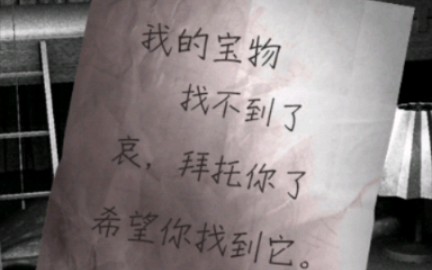 我的宝物
找不到了
哀，拜托你了
希望你找到它。